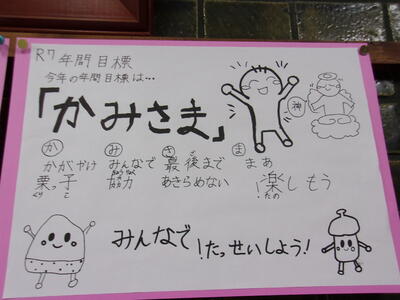 R7 年間目標
今年の年間目標は…
「かみさま」
神
か み さ ま
かがやけ みんなで 最後まで まあ
栗っ子 協力 あきらめない 楽しもう
くり こ きょうりょく たの
みんなで たっせいしよう!